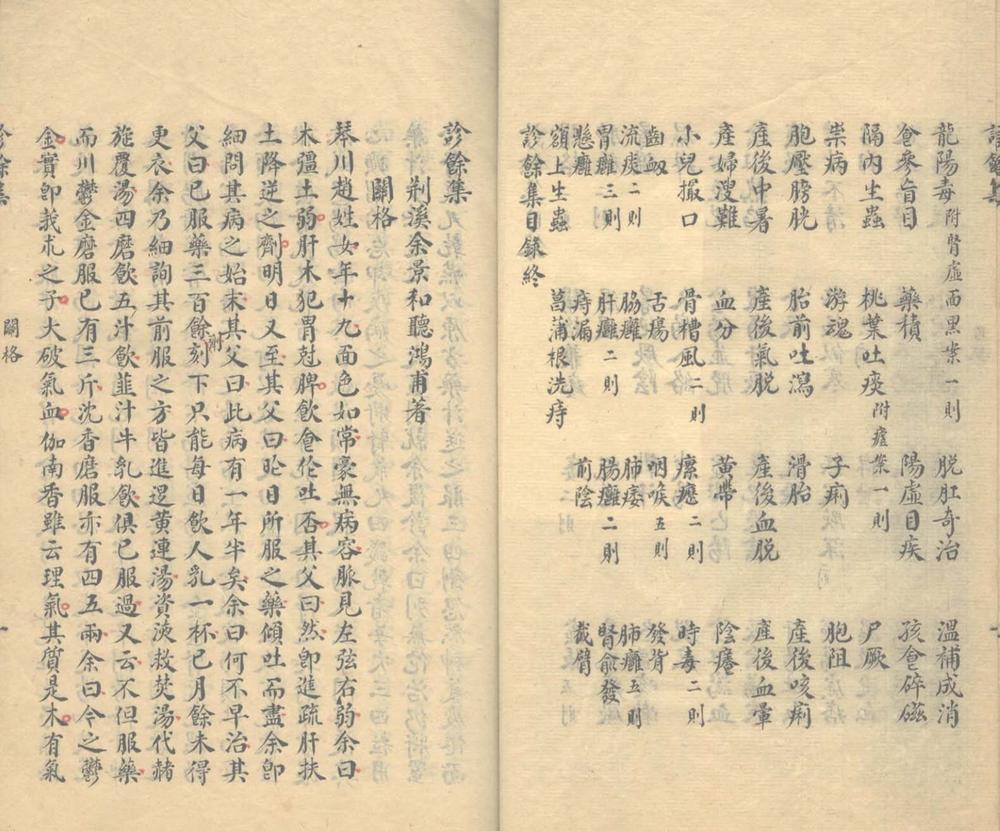 龍陽毒 附腎虛面黑案一則 脱肛奇治 溫補成消
食參盲目 藥積 陽虛目疾 孩食碎磁
隔內生蟲 桃葉吐痰 附瘧案一則 尸厥
祟病 游魂 子痢 胞阻
胞壓膀胱 胎前吐瀉 滑胎 產後咳痢
產後中暑 產後氣脱 產後血脱 產後血暈
產婦溲難 血分 黃帶
小兒撮口 骨槽風二則 瘰癧二則 時毒二則
齒衂 舌瘍 咽喉五則 發背
流痰二則 脇癰 肺痿 肺癰五則
胃癰三則 肝癰二則 腸癰二則 腎俞發
懸癰 痔漏 前陰 截臂
額上生蟲 菖蒲根洗痔
診餘集目錄終
診餘集
荊溪余景和聽鴻甫著
關格
琴川趙姓女年十九面色如常毫無病容脈見左弦右弱余曰
木彊土弱肝木犯胃尅脾飲食作吐否其父曰然卽進疏肝扶
土降逆之劑明日又至其父曰昨日所服之藥傾吐而盡余卽
細問其病之始末其父曰此病有一年半矣余曰何不早治其
父曰已服藥三百餘剂刻下只能每日飲人乳一杯已月餘未得
更衣余乃細詢其前服之方皆進退黃連湯資液救焚湯代赭
旋覆湯四磨飲五汁飲韭汁牛乳飲俱已服過又云不但服藥
而川鬱金磨服已有三斤沈香磨服亦有四五兩余曰今之鬱
金實卽莪朮之子大破氣血伽南香雖云理氣其質是木有氣
關格
一